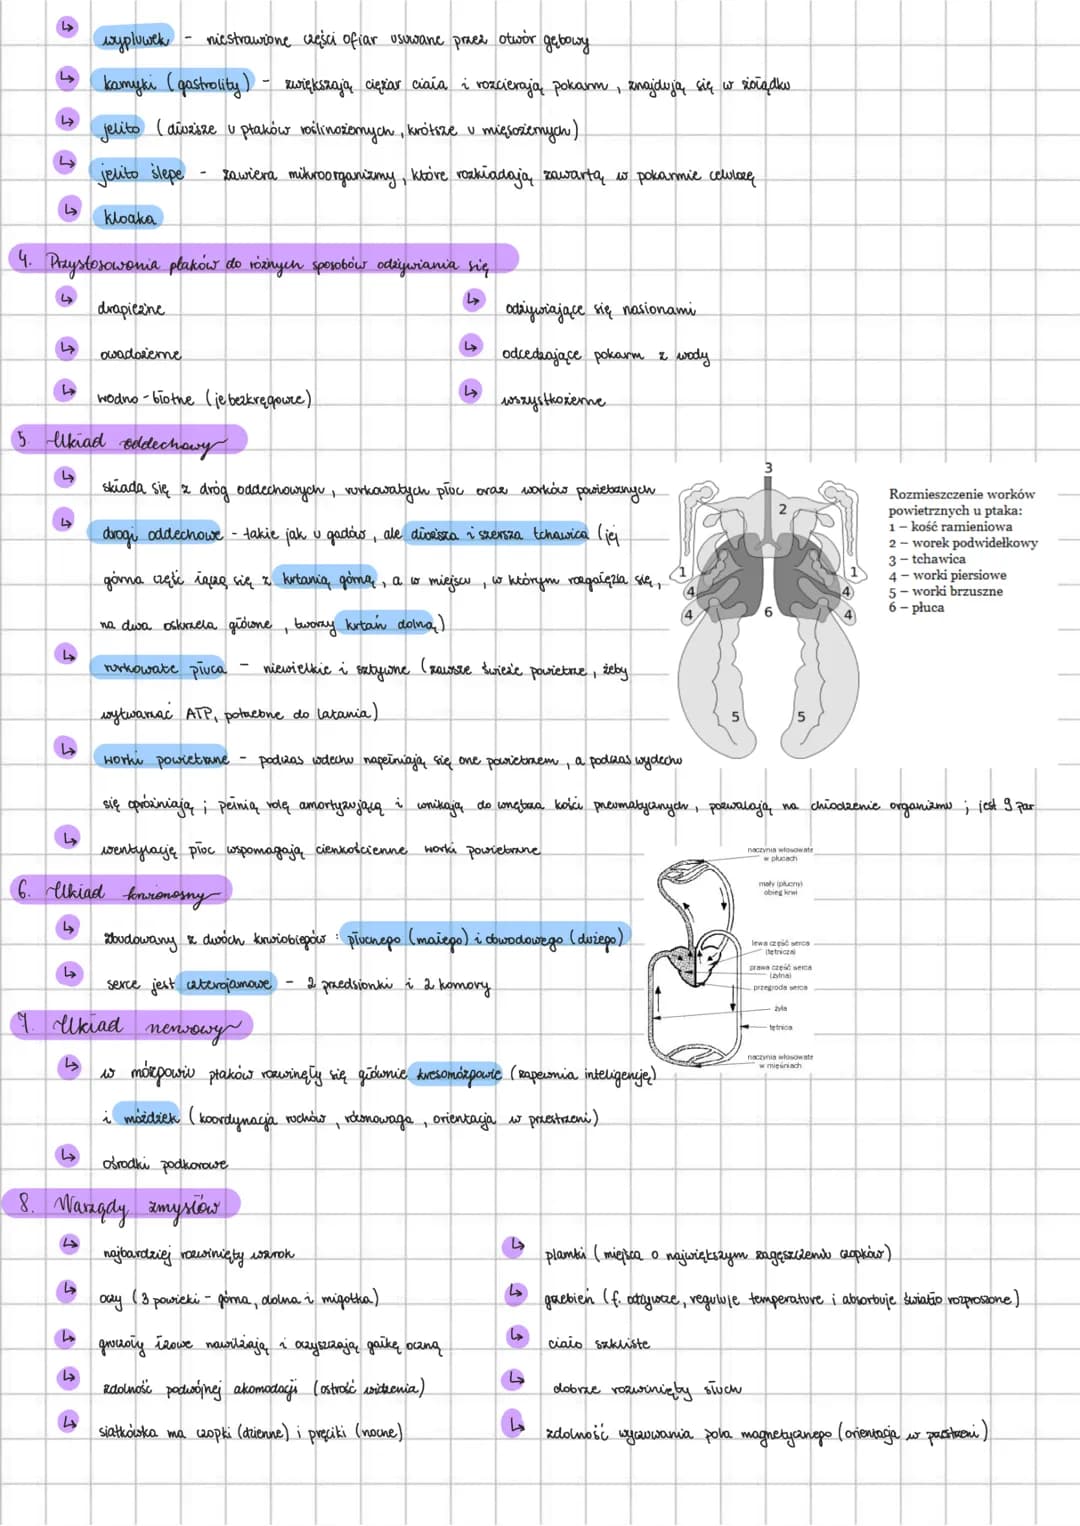 ↳ wypluwek - niestrawione części ofiar usuwane przez otwór gębowy
↳ kamyki (gastrolity) - zwiększają ciężar ciała i rozcierają pokarm, znajdują się w żołądku
↳ jelito (dłuższe u ptaków roślinożernych, krótsze u mięsożernych)
↳ jelito ślepe - zawiera mikroorganizmy, które rozkładają zawartą w pokarmie celulozę
↳ kloaka
4. Przystosowania ptaków do różnych sposobów odżywiania się
↳ drapieżne
↳ owadożerne
↳ wodno-błotne (je bezkręgowce)
↳ odżywiające się nasionami
↳ odcedzające pokarm z wody
↳ wszystkożerne
5. Układ oddechowy
↳ składa się z dróg oddechowych, rurkowatych płuc oraz worków powietrznych
↳ drogi oddechowe - takie jak u gadów, ale dłuższa i szersza tchawica (jej
górna część łączą się z krtanią górną, a w miejscu, w którym rozgałęzia się,
na dwa oskrzela główne, tworzy krtań dolną)
↳ rurkowate płuca - niewielkie i sztywne (zawsze świeże powietrze, żeby
wytwarzać ATP, potrzebne do latania)
↳ worki powietrzne - podczas wdechu napełniają się one powietrzem, a podczas wydechu
się opróżniają; pełnią rolę amortyzującą i wnikają do wnętrza kości pneumatycznych, pozwalają na chłodzenie organizmu; jest 9 par
↳ wentylację płuc wspomagają cienkościenne worki powietrzne
3
2
1
1
4
4
4
4
6
5
5
Rozmieszczenie worków
powietrznych u ptaka:
1 – kość ramieniowa
2 – worek podwidełkowy
3 – tchawica
4 – worki piersiowe
5 – worki brzuszne
6 – płuca
6. Układ krwionośny
↳ zbudowany z dwóch krwiobiegów: płucnego (małego) i obwodowego (dużego)
↳ serce jest czterojamowe - 2 przedsionki i 2 komory
naczynia włosowate
w płucach
mały (płucny)
obieg krwi
lewa część serca
(tętnicza)
prawa część serca
(żylna)
przegroda serca
żyła
tętnica
naczynia włosowate
w mięśniach
7. Układ nerwowy
↳ w mózgowiu ptaków rozwinęły się głównie kresomózgowie (zapewnia inteligencję)
i móżdżek (koordynacja ruchów, równowaga, orientacja w przestrzeni)
↳ ośrodki podkorowe
8. Narządy zmysłów
↳ najbardziej rozwinięty wzrok
↳ oczy (3 powieki - górna, dolna i migotka)
↳ gruczoły łzowe nawilżają i oczyszczają gałkę oczną
↳ zdolność podwójnej akomodacji (ostrość widzenia)
↳ siatkówka ma czopki (dzienne) i pręciki (nocne)
↳ plamki (miejsca o największym zagęszczeniu czopków)
↳ grzebień (f. odżywcze, reguluje temperature i absorbuje światło rozproszone)
↳ ciało szkliste
↳ dobrze rozwinięty słuch
↳ zdolność wyczuwania pola magnetycznego (orientacja w przestrzeni)